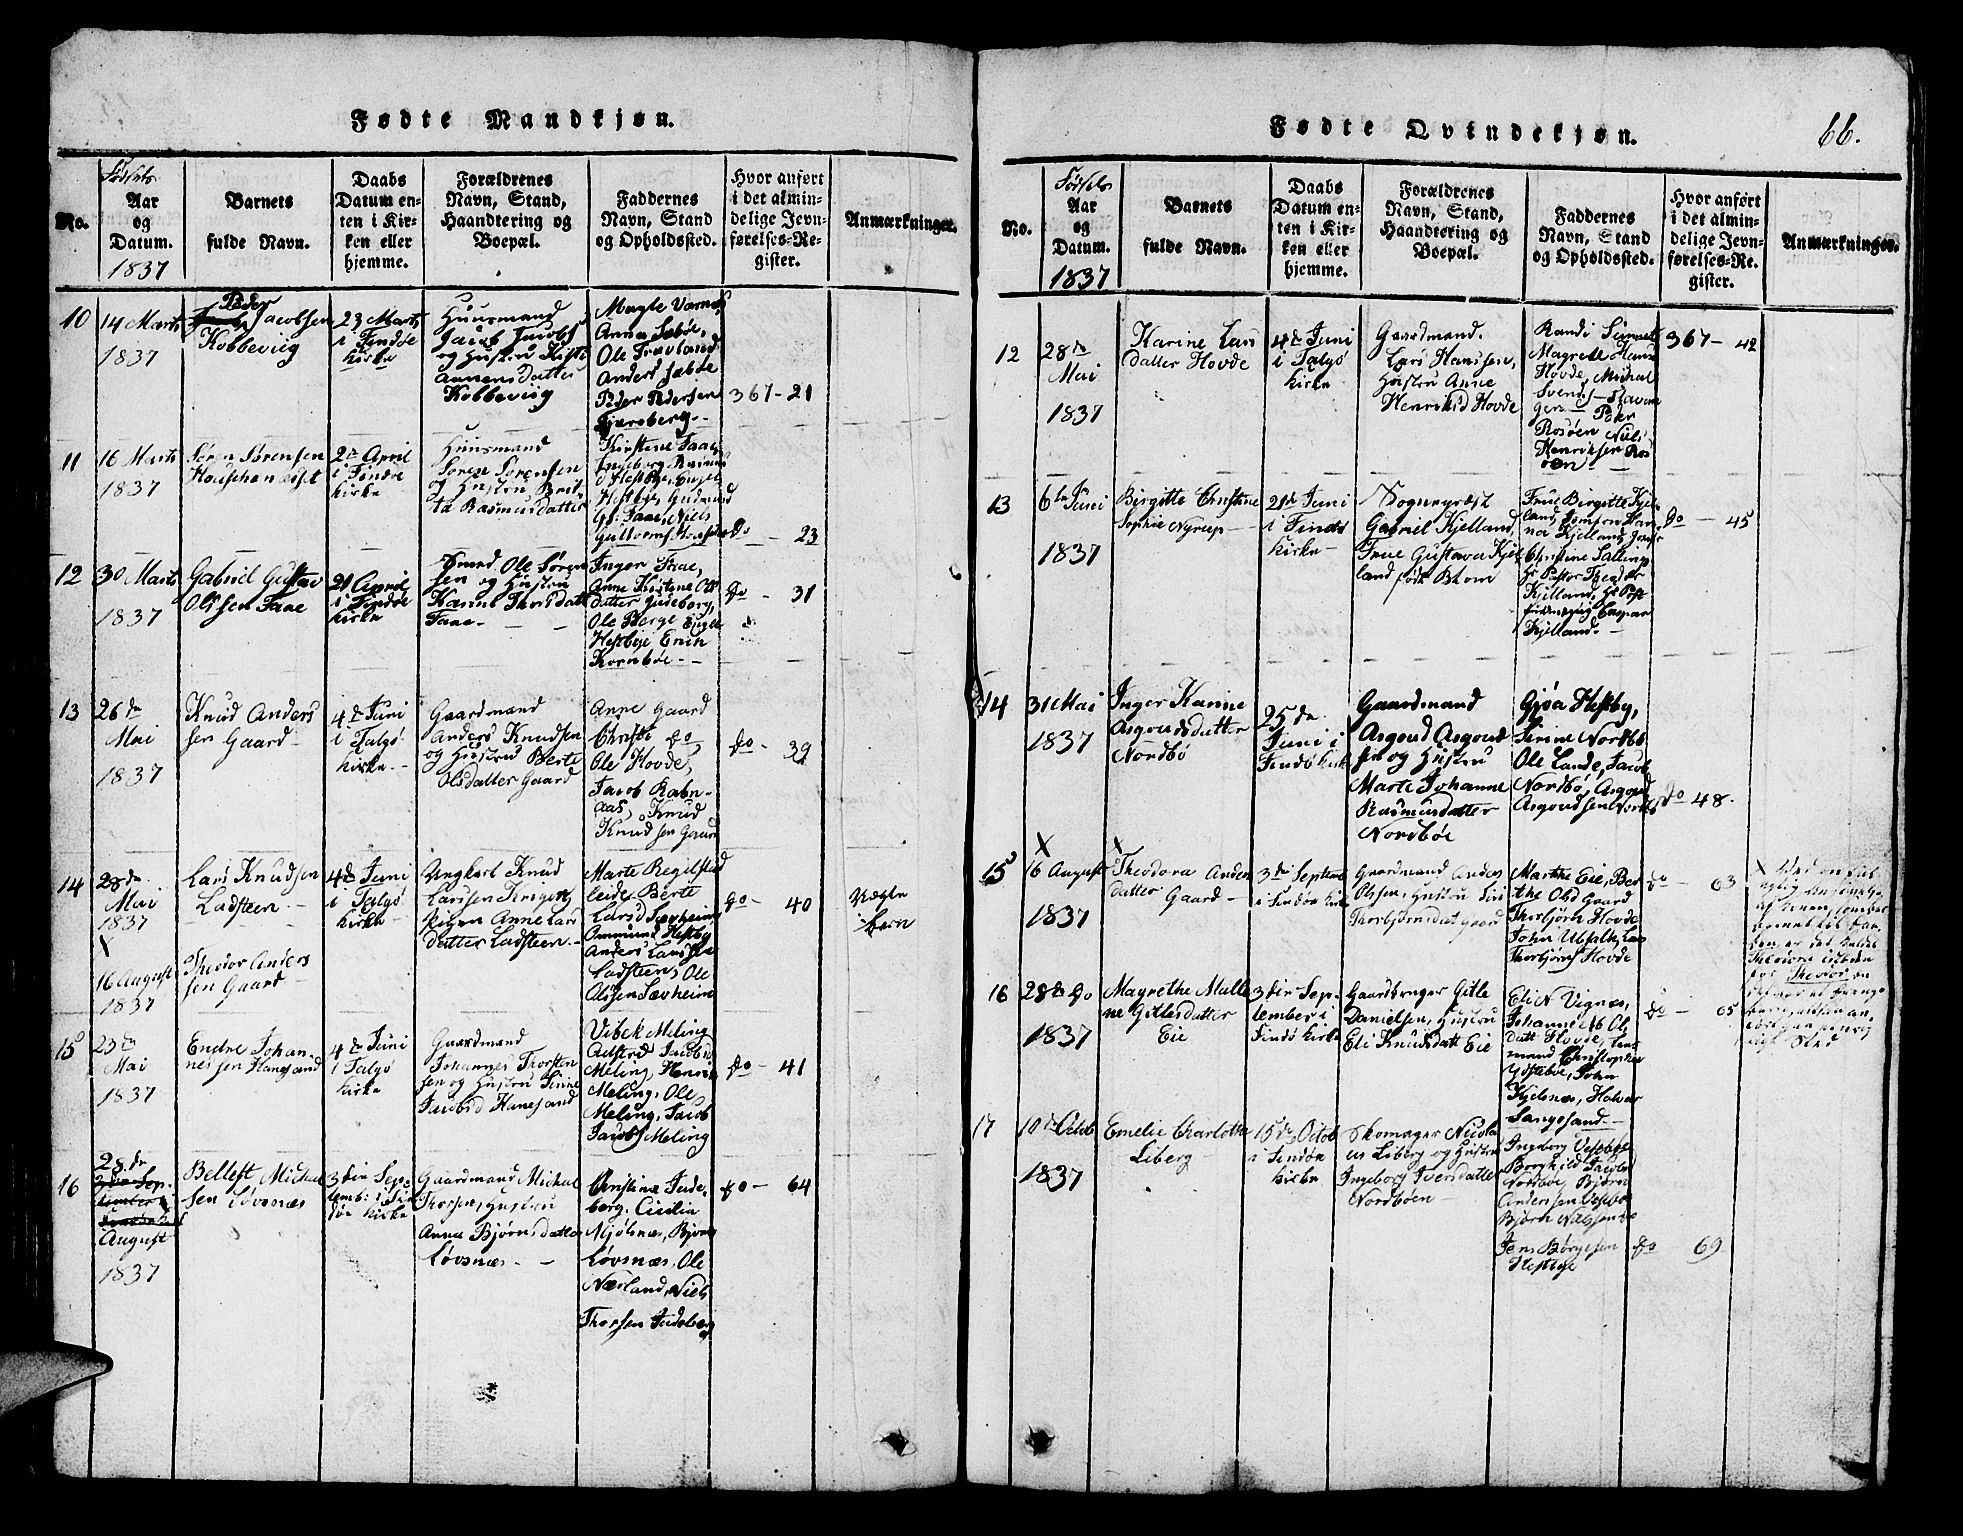 Fødte Mandkjøn.
No.
Fødsels
Aar
og
Datum.
1837
Barnets
fulde Navn.
Daabs
Datum en-
ten i Kir-
ken eller
hjemme.
Forældrenes
Navn, Stand,
Haandtering og
Boepæl.
Faddernes
Navn, Stand
og Opholdssted.
Hvor anført
i det almin-
delige Jevn-
førelses-Re-
gister.
Anmærkninger.
10
14 Marts
1837
Peder
Jacobsen
Kobbeviig
23 Marts
i Findøe
Kirke
Huusmand
Jacob Jacobs
og Hustru
Kobbeviig
Anna Sebøe,
Ole Fravland
Anders Sæbøe
Peder Pedersen
367 - 21
11
16 Marts
1837
Søren Sørensen
2den April
i Findøe
Kirke
Huusmand
Søren Sørensen
og Hustru Brit-
ta Rasmusdatter
Kirstine Faae,
Ingeborg
d Hesbye, Engel
Hesbye, Gudmund
do - 23
12
30 Marts
1837
Gabriel Gustav
Olssen Faae
21 April
i Findøe
Kirke
Smed Ole Søren
sen og Hustru
Hanne Thorsdatt
Faae
Inger Faae,
Anne Kirstene Ols
datter Judeberg,
Ole Berge Engle
Hesbye Erich
Kornbøe
do - 31
13
26de
Mai
1837
Knud Anders
sen Gaard
4de Juni
i Talgø
Kirke
Gaardmand
Anders Knudsen
og Hustru Berte
Olsdatter Gaard
Anne Gaard
Christi do
Ole Hovde,
Jacob Rabn-
aas, Knud
Knudsen Gaard
do - 39
14
28de
Mai
1837
Lars Knudsen
Ladsteen
4de Juni
i Talgø
Kirke
Ungkarl Knud
Larsen
Pigen Anne Lars
datter Ladsteen
Marte Regilstad
Berte
Larsd Sævheim
Ommund Hesby
Anders Larss
Ladsteen, Ole
Olssen Sævheim
do - 40
Uægte
barn
X
16 August
1837
Theodor Anders
sen Gaard
15
23de
Mai
1837
Endre Johan
nessen Hanesand
4de Juni
i Talgø
Kirke
Gaardmand
Johannes Thorsten
sen og Hustru
Jacobsd Hanesand
Vibek Meling
Jacobsd
Meling, Henrik
Meling, Ole
Meling, Jacob
Jacobs Meling
do - 41
16
28de
August
1837
Bellest Michal
sen Løvsnæs
3die Sep-
temb: i Fin
døe Kirke
Gaardmand Michal
Thorsen, Hustru
Anna Bjørnsdatter
Løvsnæs
Christina Jude-
berg, Cicilia
Mjølsnæs, Bjørn
Løvsnæs, Ole
Nærland, Niels
Thorsen Judeberg
do - 64
Fødte Qvindekjøn.
66.
No.
Fødsels
Aar
og
Datum.
1837
Barnets
fulde Navn.
Daabs
Datum en-
ten i Kir-
ken eller
hjemme.
Forældrenes
Navn, Stand,
Haandtering og
Boepæl.
Faddernes
Navn, Stand
og Opholdssted.
Hvor anført
i det almin-
delige Jevn-
førelses-Re-
gister.
Anmærkninger.
12
28de
Mai
1837
Karine Lars
datter Hovde
4de Juni
i Talgø
Kirke
Gaardmand.
Lars Hanssen,
Hustru Anne
Henriksd Hovde
Randi
Magrete Hans
Hovde, Michal
Svends Stavan
ger - Peder
Rosøen Niels
Henriksen Ros
øen
367 - 42
13
6te Juni
1837
Birgitte Christine
Sophie Nyrup
21de Juni
i Findø
Kirke
Sogneprest
Gabriel Kjelland
Frue Gustava Kjel
land født Blom
Frue Birgitte Kjel-
land, Jomfru Han-
na Kjelland,
Christine
Hr Pastor
Kjelland,
Caspar
Kjelland.
do - 45
14
31 Mai
1837
Inger Karine
Asgoudsdatter
Nordbø
25de
Juni i
Findø Kirk
Gaardmand
Asgoud Asgoud
sen og Hustru
Marte Johanne
Rasmusdatter
Nordbøe
Gjøa Hesby,
Serine Nordbø
Ole Lande, Jacob
Nordbø, Asgoud
Asgoudsen Nordbø
do 48.
15
X
16 August
1837
X
Theodora Anders
datter
Gaard
3die Septem
i Findøe Kirk
Gaardmand Anders
Olsen, Hustru Siri
Thorbjørnsdat gaard
Marthe Eie, Ber
the Olsd Gaard
Thorbjørn Hovde
John Ubfalk, Lars
Thorbjørns Hovde
do - 63
16
28de do
1837
Magrethe Malle
ne Gitlesdatter
Eie
3die Sep-
tember i
Findø Kirke
Gaardbruger Gitle
Danielsen, Hustru
Eli Knudsdatt Eie
Eli N Vignes,
Johanne Ols
datt Hovde,
mand Christopher
Ydstebøe, John
Kjelsnæs, Halvor
Langesand
do - 65
17
10de Octob
1837
Emelie Charlotte
Liberg
15de Octob
i Findøe
Kirke
Skomager Nicola
us Liberg og Hustru
Ingeborg Iversdatter
Nordbøen
Ingeborg Vestbøe
Borghild Jacobsd
Nordbøe, Bjørn
Anderssen Vestbøe
Bjørn
Jens Børgesen
Hesbye
do 69
X